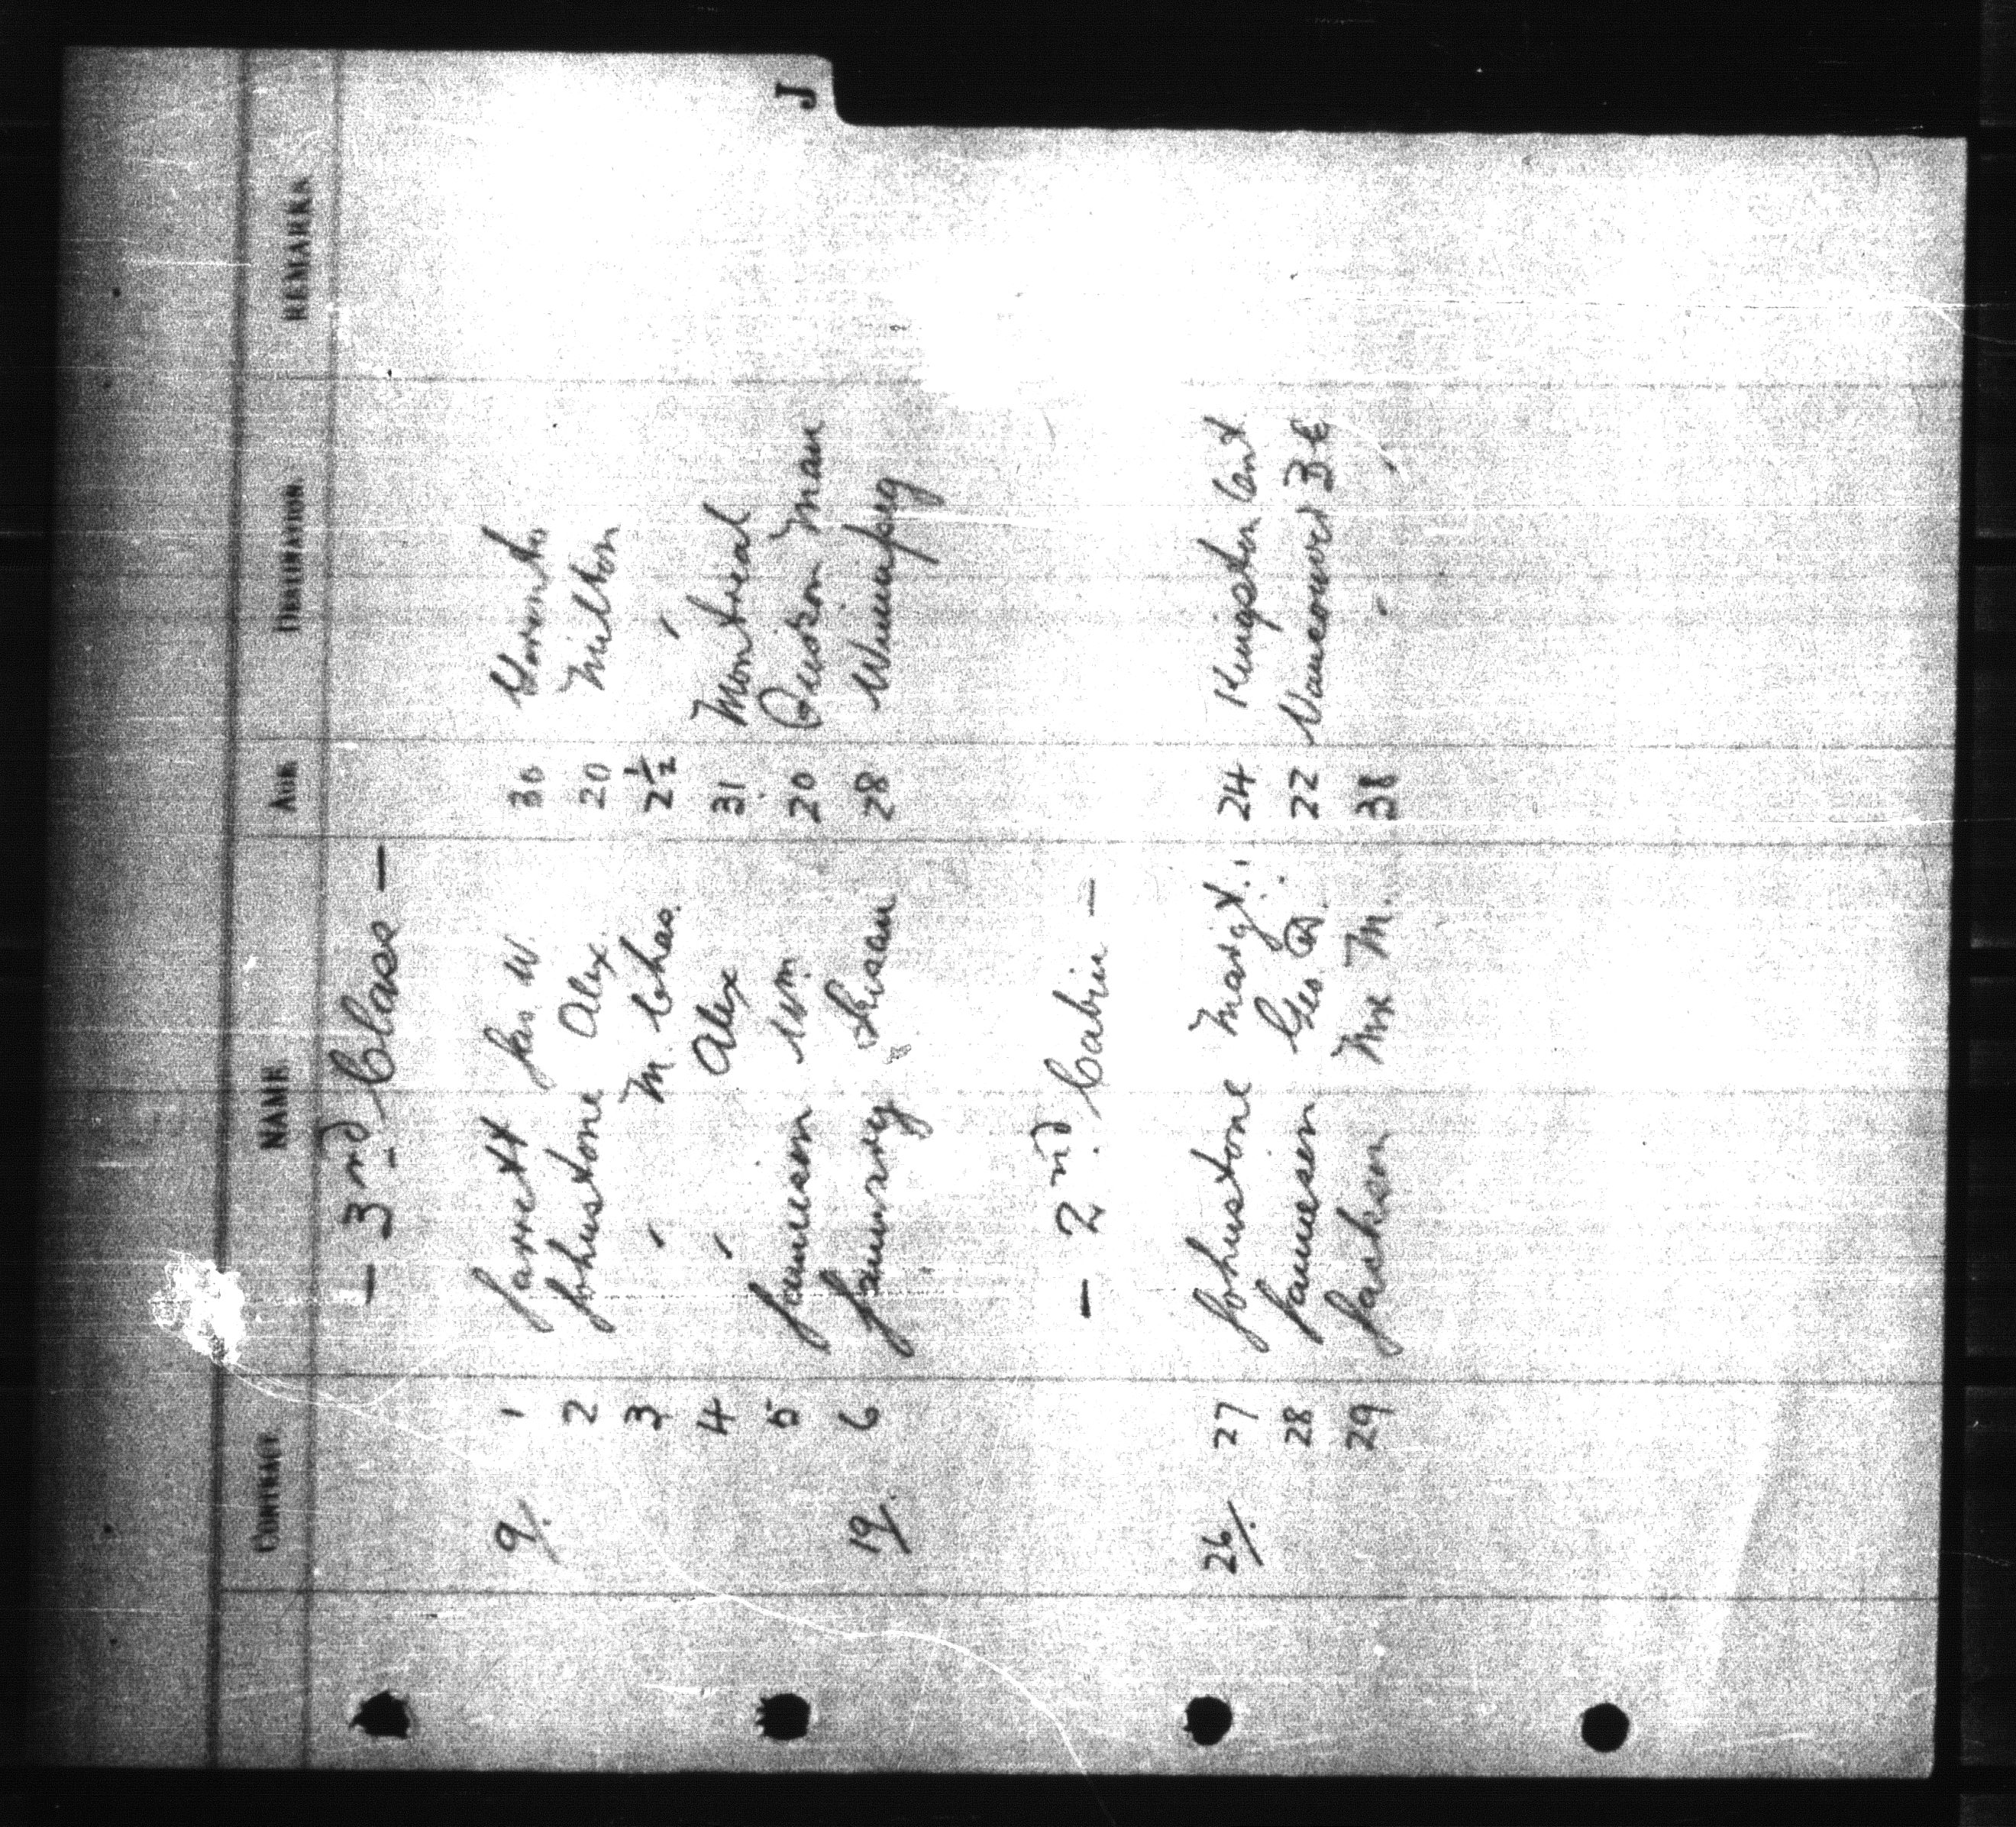 J
CONTRACT NAME AGE DESTINATION REMARKS
— 3rd Class —
9/. 1 Jarrett Jas. W. 36 Toronto
2 Johnstone Alex. 20 Milton
3 " M. Chas. 2½ "
4 " Alex 31 Montreal
5 Jamieson Wm. 20 Man
19/. 6 28 Winnipeg
— 2nd. Cabin —
26/. 27 Johnstone Margt. 24 Kingston Ont.
28 Jamieson Geo. 22 Vancouver B C
29 Jackson Mr M. 38 " "